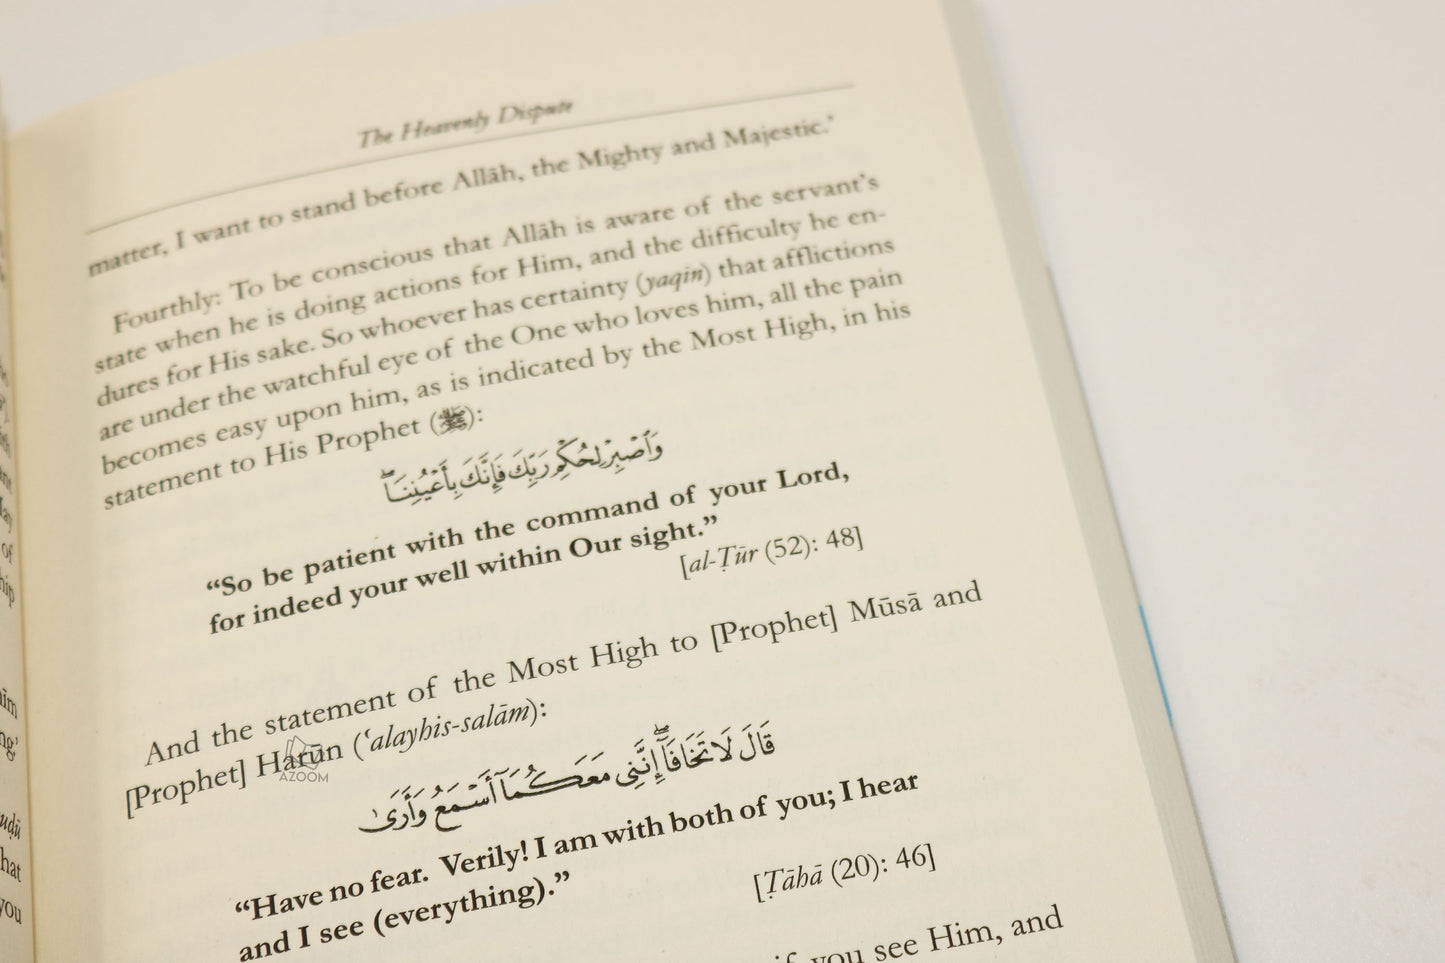 The Heavenly Dispute
matter, I want to stand before Allāh, the Mighty and Majestic.'
Fourthly: To be conscious that Allāh is aware of the servant's
state when he is doing actions for Him, and the difficulty he en-
dures for His sake. So whoever has certainty (yaqin) that afflictions
are under the watchful eye of the One who loves him, all the pain
becomes easy upon him, as is indicated by the Most High, in his
statement to His Prophet (ﷺ):
وَٱصْبِرْ لِحُكْمِ رَبِّكَ فَإِنَّكَ بِأَعْيُنِنَا ۖ
“So be patient with the command of your Lord,
for indeed your well within Our sight.”
[al-Ṭūr (52): 48]
And the statement of the Most High to [Prophet] Mūsā and
[Prophet] Harūn (‘alayhis-salām):
قَالَ لَا تَخَافَآ ۖ إِنَّنِى مَعَكُمَآ أَسْمَعُ وَأَرَىٰ
“Have no fear. Verily! I am with both of you; I hear
and I see (everything).”
[Ṭāhā (20): 46]
if you see Him, and
AZOOM